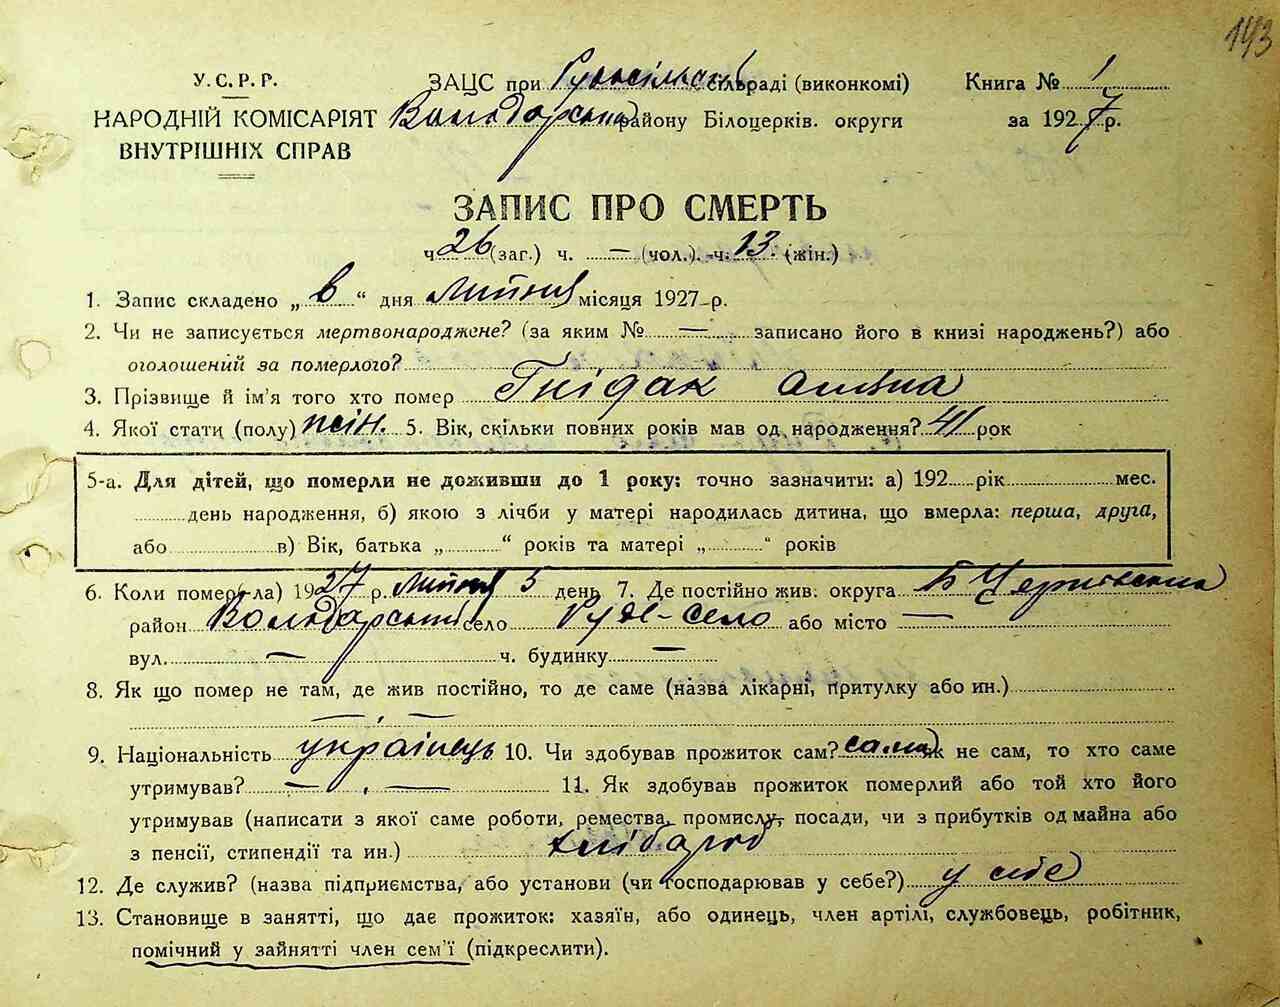 143
У.С.Р.Р.
НАРОДНІЙ КОМІСАРІЯТ
ВНУТРІШНІХ СПРАВ
ЗАЦС при Рудосільській сільраді (виконкомі)
Володарського району Білоцерків. округи
Книга № 1
за 1927 р.
ЗАПИС ПРО СМЕРТЬ
ч. 26 (заг.) ч. — (чол.) ч. 13. (жін.)
1. Запис складено „ 6 “ дня липня місяця 1927 р.
2. Чи не записується мертвонароджене? (за яким № — записано його в книзі народжень?) або
оголошений за померлого?
3. Прізвище й ім’я того хто помер Гнідак
4. Якої стати (полу) жін. 5. Вік, скільки повних років мав од народження? 41 рок
5-а. Для дітей, що померли не доживши до 1 року: точно зазначити: а) 192 рік мес.
день народження, б) якою з лічби у матері народилась дитина, що вмерла: перша, друга,
або в) Вік, батька „ “ років та матері „ “ років
6. Коли помер(-ла) 1927 р. липня 5 день 7. Де постійно жив. округа Б Церківська
район Володарський село Руде-село або місто —
вул. — ч. будинку —
8. Як що помер не там, де жив постійно, то де саме (назва лікарні, притулку або ин.)
— —
9. Національність українець 10. Чи здобував прожиток сам? сама як не сам, то хто саме
утримував? — . — 11. Як здобував прожиток померлий або той хто його
утримував (написати з якої саме роботи, ремества, промислу, посади, чи з прибутків од майна або
з пенсії, стипендії та ин.) хлібороб
12. Де служив? (назва підприємства, або установи (чи господарював у себе?) у себе
13. Становище в занятті, що дає прожиток: хазяїн, або одинець, член артілі, службовець, робітник,
помічний у зайнятті член сем’ї (підкреслити).